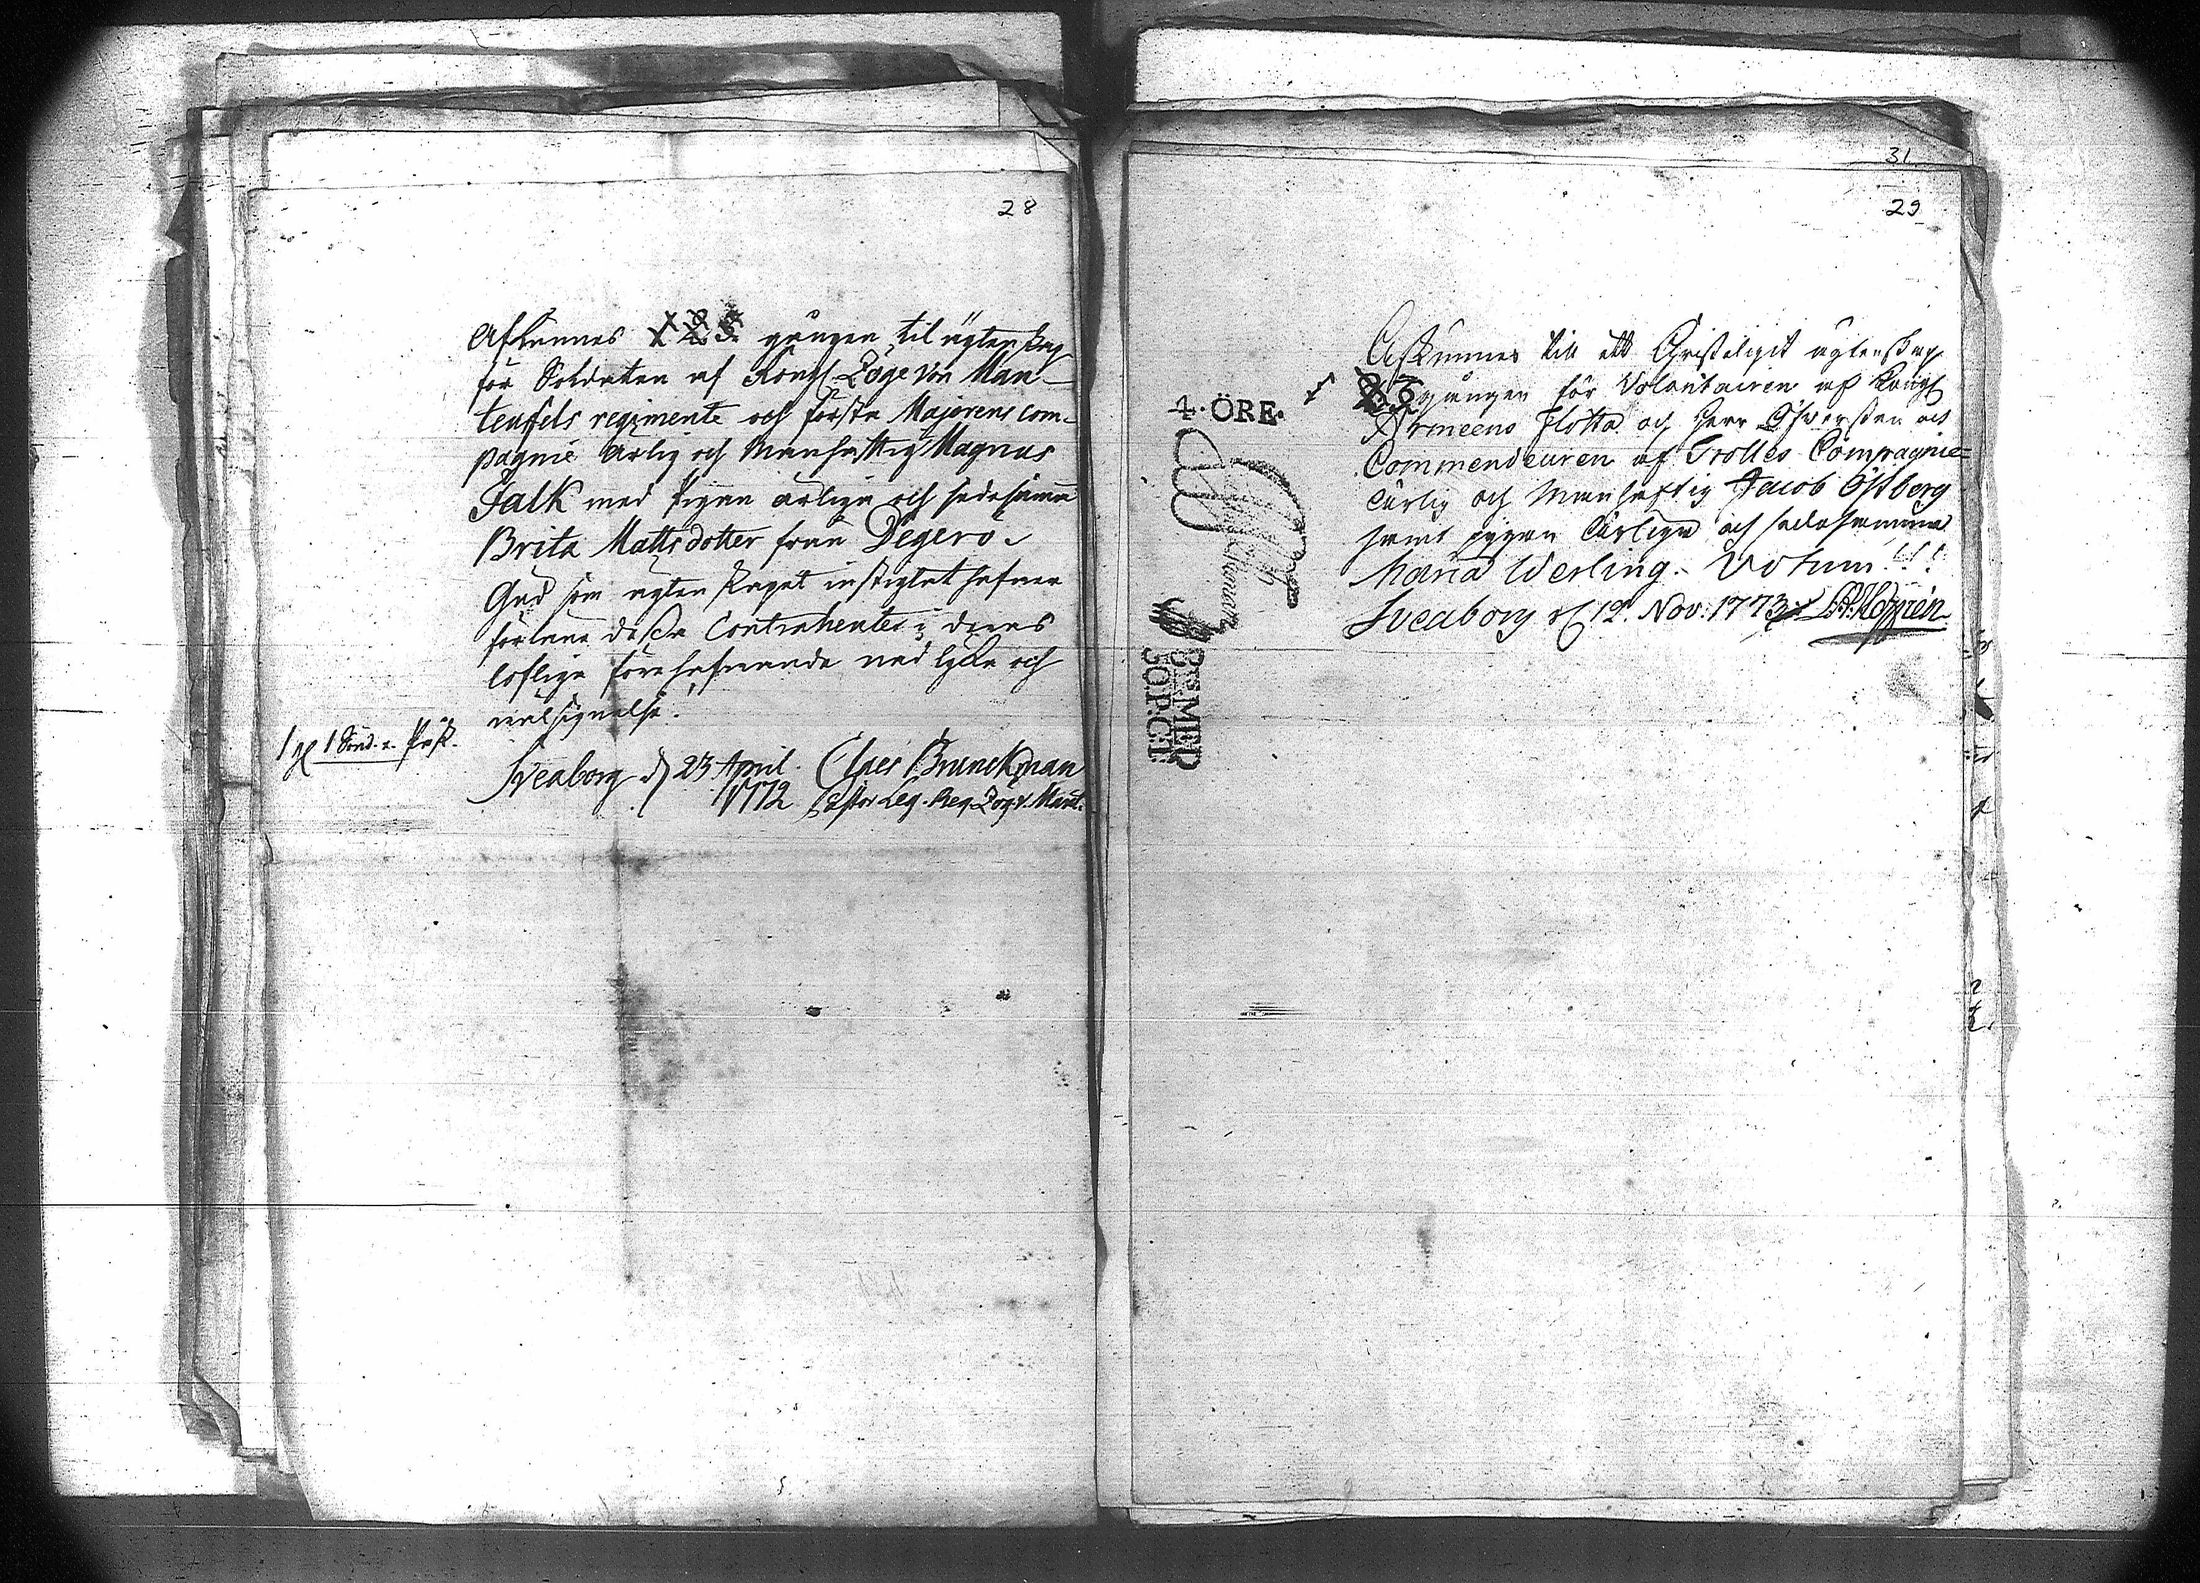 28
Afkunnes 1 2 3 gången til ägtenskap
för Soldaten af Kongl. Zöge von Man-
teufels regimente och första Majorens com-
pagnie ärlig och Manhaftig Magnus
Falk med Pigan ärliga och sedesamma
Brita Matts dotter från Degerö.
Gud som ägtenskapet instigtat hafver
förläne dessa Contrahenter i deras
loflige förehafvande med lycka och
välsignelse.
Sveaborg d 23 April. Claes Brunckman
1772 Pastor Leg. Reg. Zög. v. Mant.
31.
29
4. ÖRE.
SMT
Afkunnes till ett Christeligit ägtenskap
2 3 gången för Volontairen vid Kongl
Armeens flotta och Herr Öfwersten och
Commendeuren af Trolles Compagnie
ärlig och Manhaftig Jacob Östberg
samt pigan ärliga och sedesamma
Maria Werling. Votum!!!
Sveaborg d 12. Nov: 1773